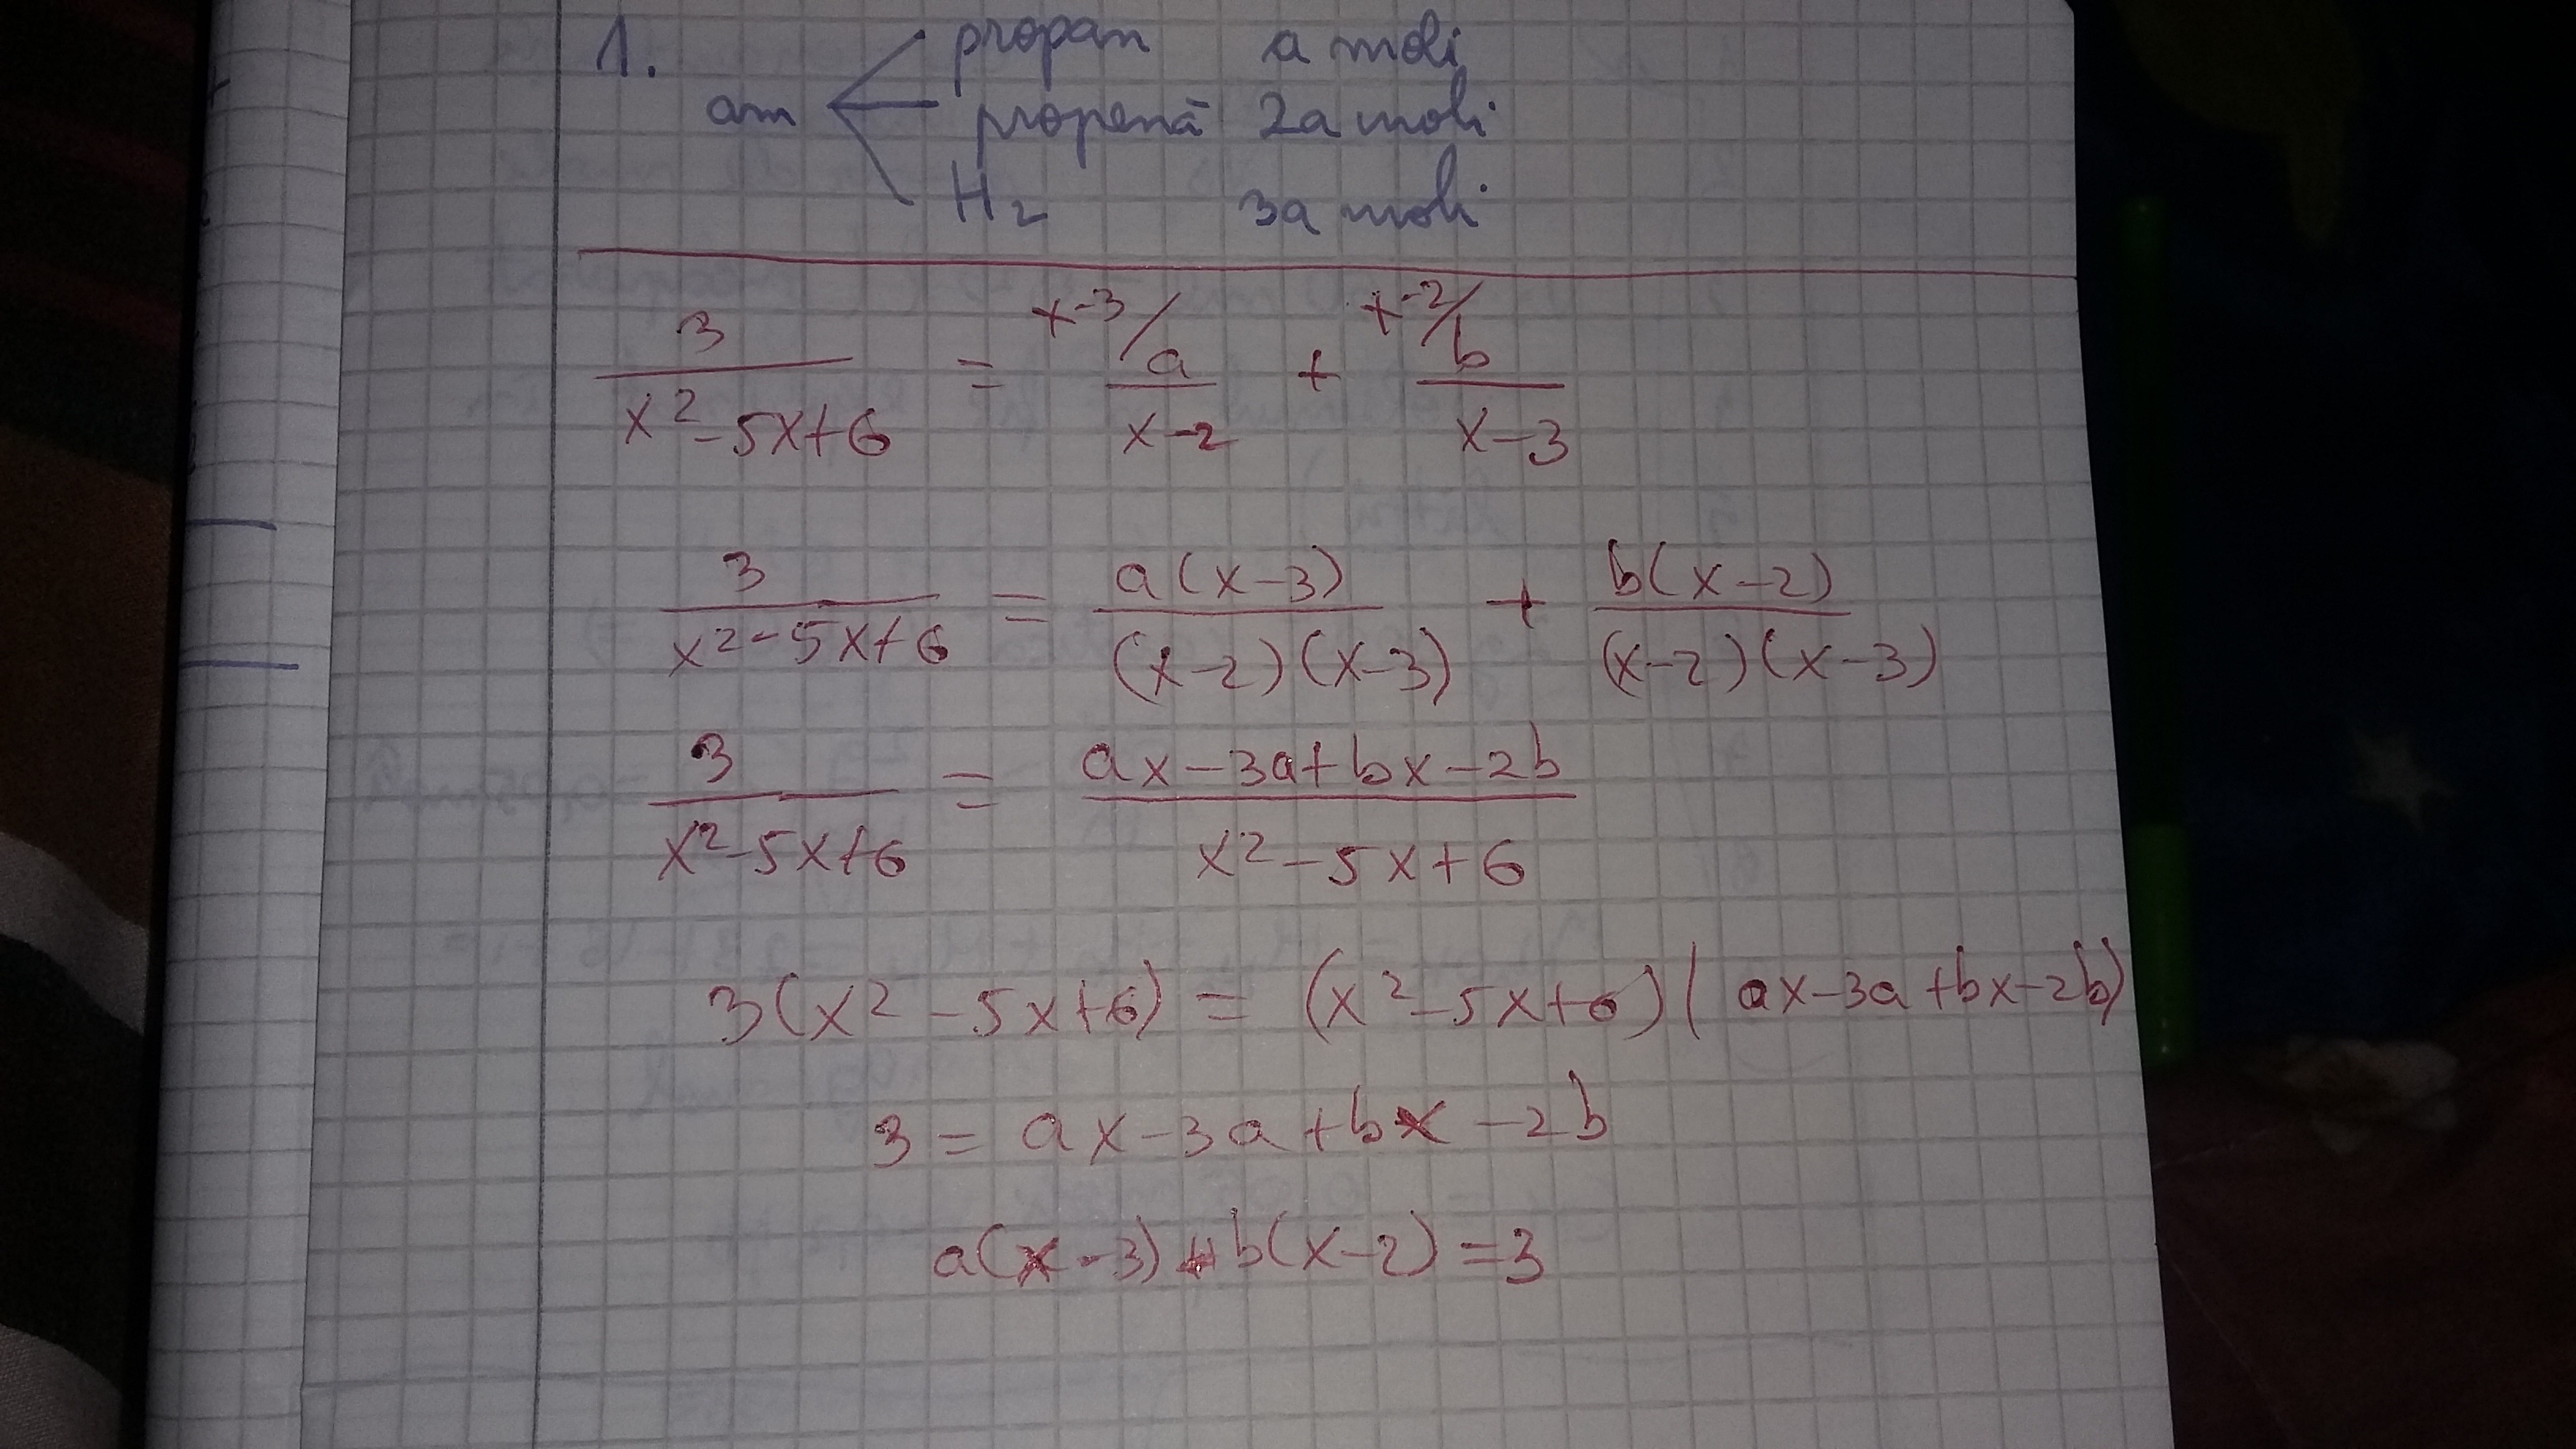 1.
propan a moli
am propenă 2a moli
H2 3a moli
x-3/ x-2/
3/(x²-5x+6) = a/(x-2) + b/(x-3)
3/(x²-5x+6) = a(x-3)/((x-2)(x-3)) + b(x-2)/((x-2)(x-3))
3/(x²-5x+6) = (ax-3a+bx-2b)/(x²-5x+6)
3(x²-5x+6) = (x²-5x+6)(ax-3a+bx-2b)
3 = ax-3a+bx-2b
a(x-3)+b(x-2)=3